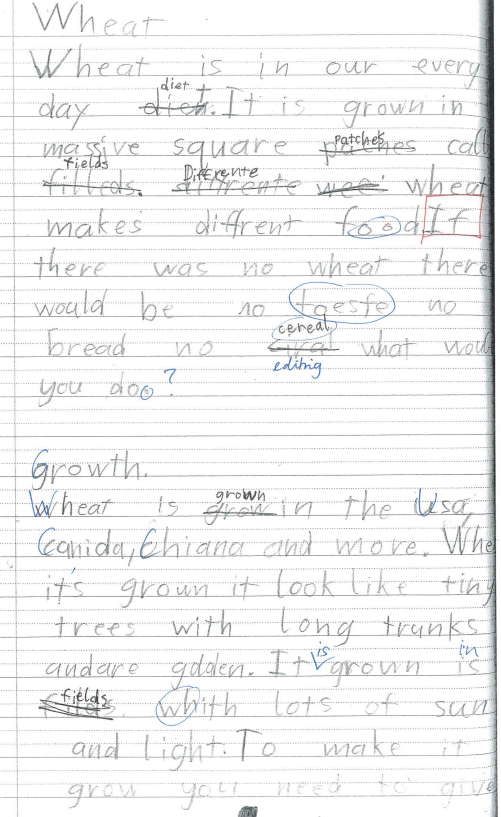 Wheat
Wheat is in our every
day diet. It is grown in
massive square patches call
fields. Diffrente wheat
makes diffrent food If
there was no wheat there
would be no no
bread no cereal what woul
editing
you doo?
Growth.
Wheat is grown in the Usa,
Canida, Chiana and more. Whe
it's grown it look like tiny
trees with long trunks
andare golden. It is grown in
fields whith lots of sun
and light. To make it
grow you need to give